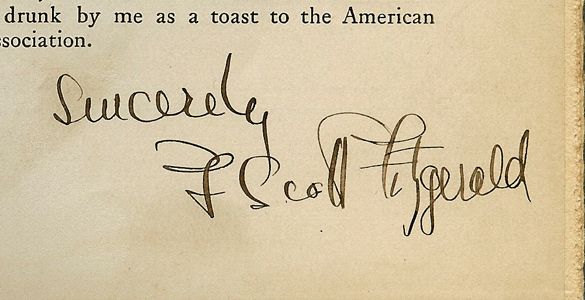 drunk by me as a toast to the American
ssociation.
Sincerely
F Scott Fitzgerald